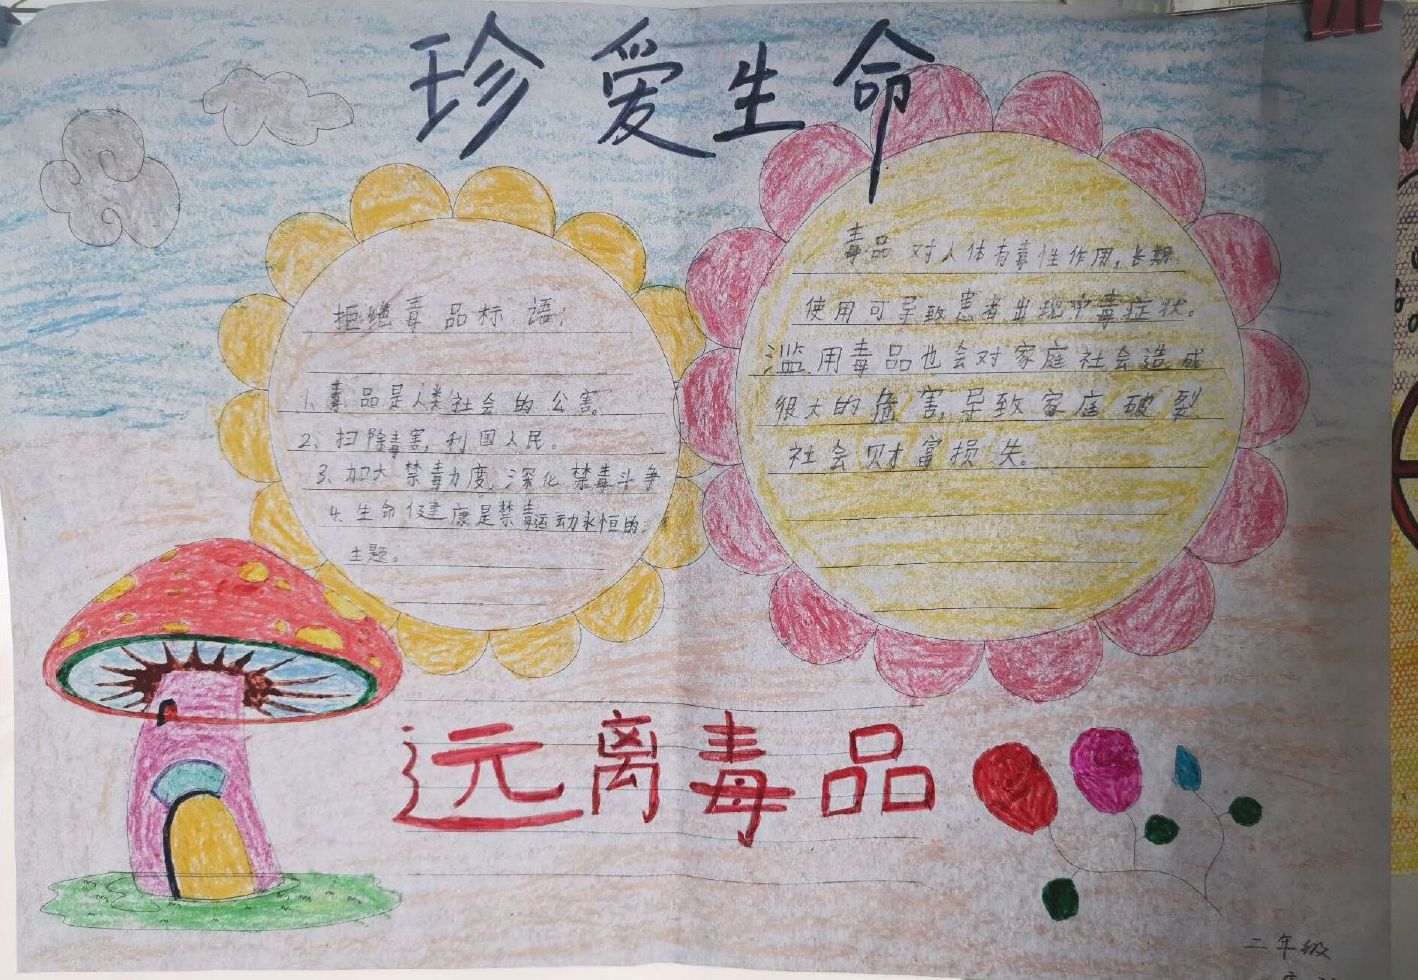 珍爱生命
拒绝毒品标语:
1、毒品是人类社会的公害。
2、扫除毒害,利国人民。
3、加大禁毒力度,深化禁毒斗争
4、生命健康是禁毒运动永恒的
主题。
毒品对人体有毒性作用,长期
使用可导致患者出现中毒症状。
滥用毒品也会对家庭社会造成
很大的危害,导致家庭破裂
社会财富损失。
远离毒品
二年级